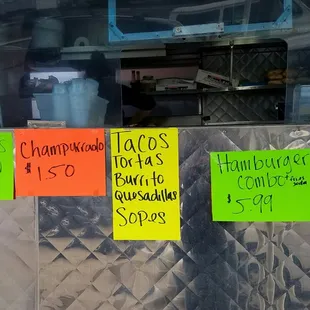 Champurrado
$1.50
Tacos
Tortas
Burrito
Quesadillas
Sopes
Hamburger
combo
$5.99